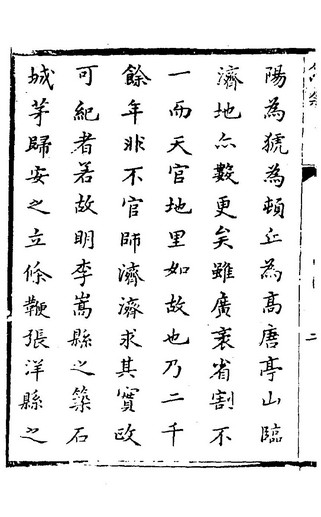 陽為猇為頓丘為高唐亭山臨
濟地亦數更矣雖廣袤省割不
一而天官地里如故也乃二千
餘年非不官師濟濟求其實政
可紀者若故明李嵩縣之築石
城茅歸安之立條鞭張洋縣之